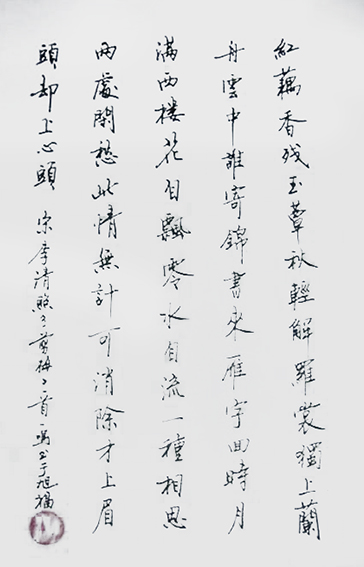 紅藕香残玉簟秋輕解羅裳獨上蘭
舟雲中誰寄錦書來雁字回時月
滿西楼花自飄零水自流一種相思
兩處閑愁此情無計可消除才上眉
頭却上心頭 宋李清照 剪梅 一首